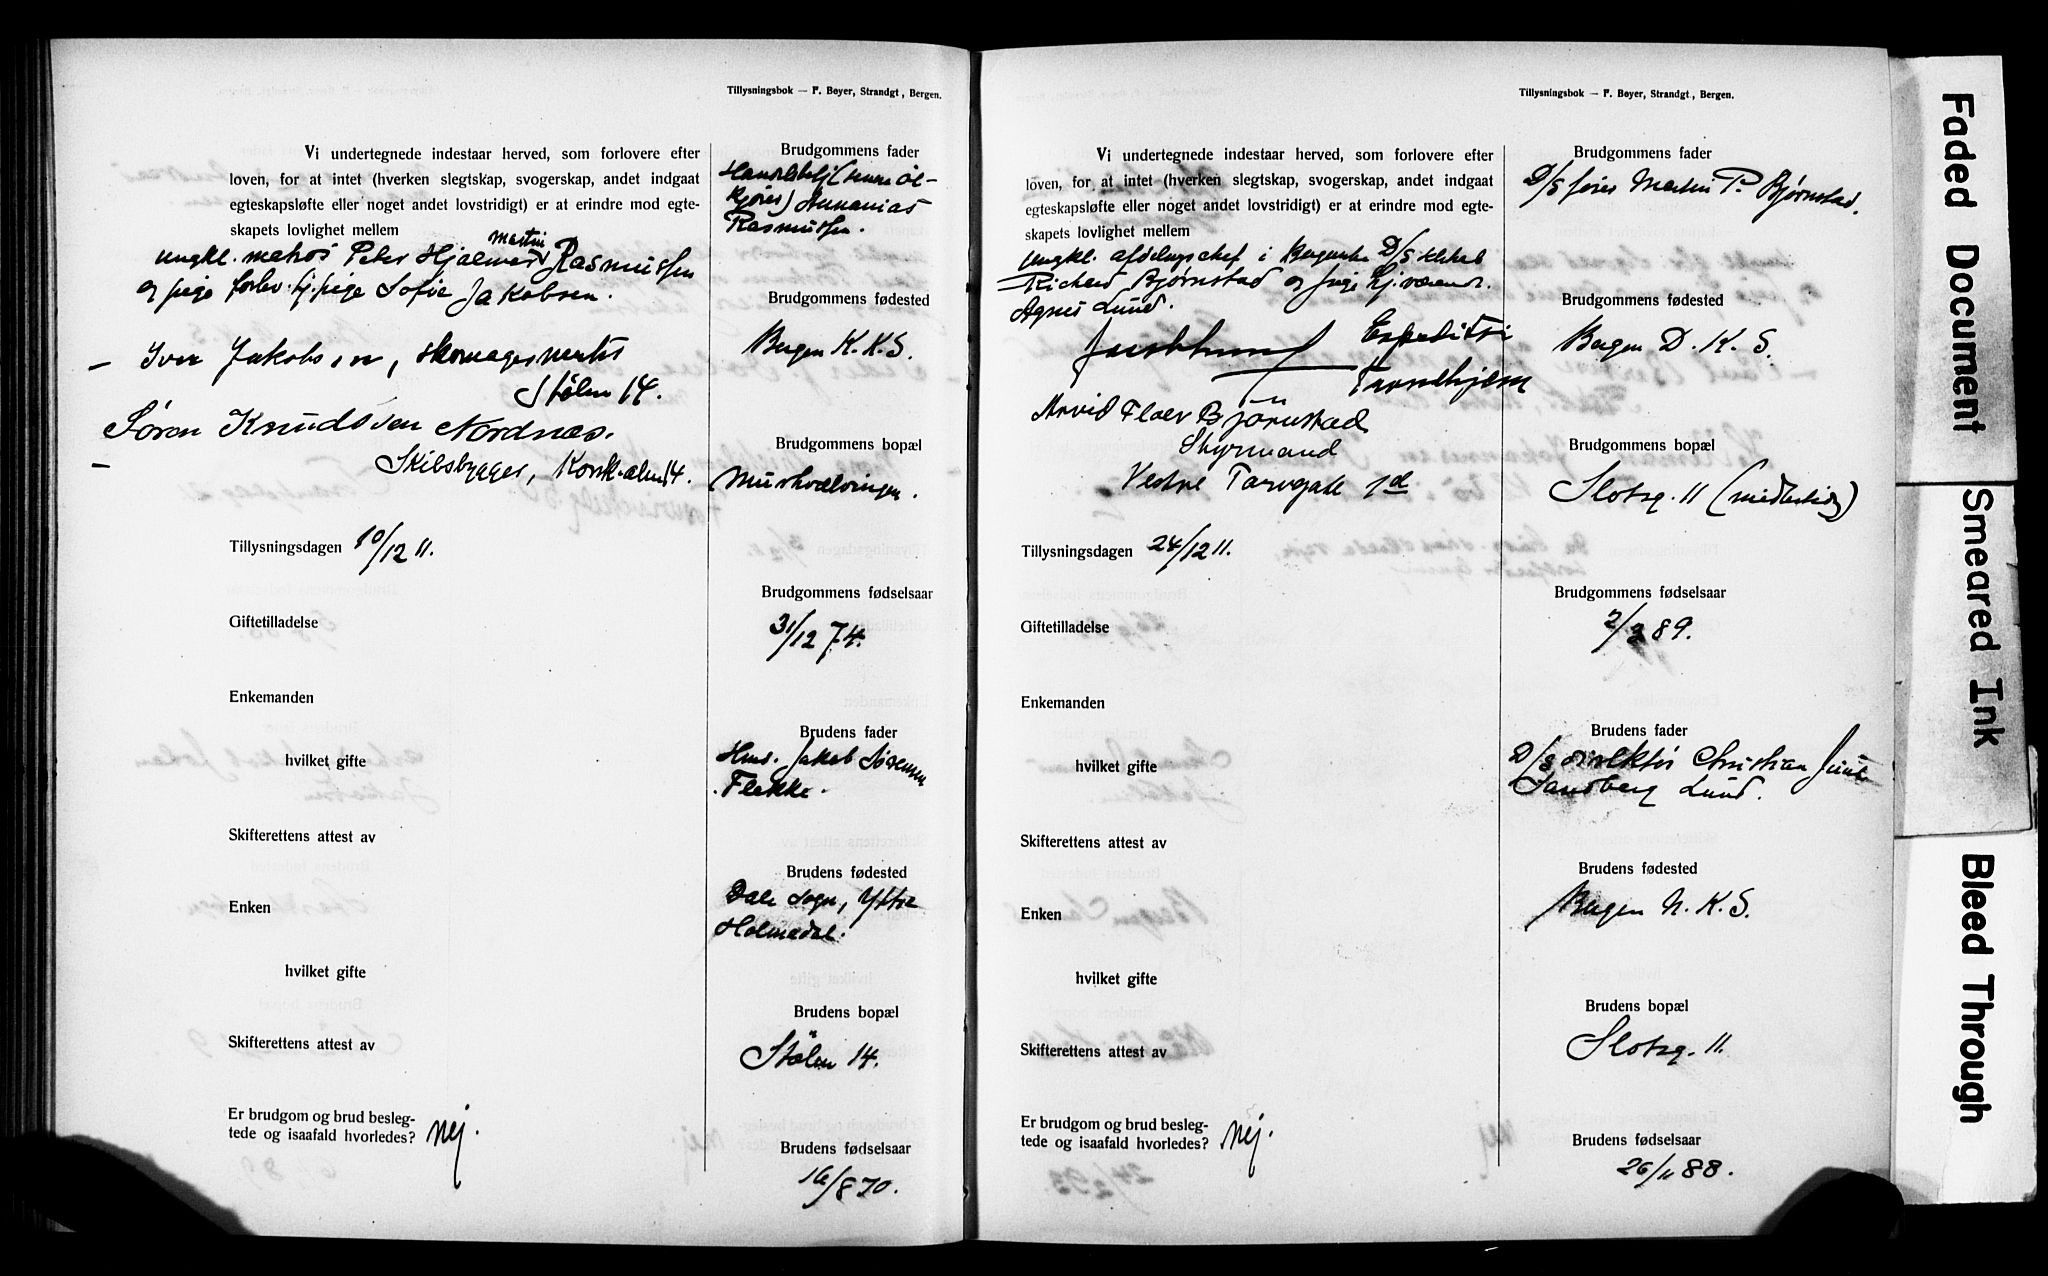 Tillysningsbok — F. Beyer, Strandgt, Bergen.
Vi undertegnede indestaar herved, som forlovere efter
loven, for at intet (hverken slegtskap, svogerskap, andet indgaat
egteskapsløfte eller noget andet lovstridigt) er at erindre mod egte-
skapets lovlighet mellem
ungkl. matros Peter Hjalmar Martin Rasmussen
og pige forlev. hj. pige Sofie Jakobsen.
Iver Jakobsen, skomagermester
Stølen 14.
Søren Knudsen Nordnæs.
Skibsbygger, 14.
Tillysningsdagen 10/12 11.
Giftetilladelse
Enkemanden
hvilket gifte
Skifterettens attest av
Enken
hvilket gifte
Skifterettens attest av
Er brudgom og brud besleg-
tede og isaafald hvorledes? Nej.
Brudgommens fader
Ananias
Rasmussen.
Brudgommens fødested
Bergen K.K.S.
Brudgommens bopæl
Murhvælvingen.
Brudgommens fødselsaar
31/12 74.
Brudens fader
Hmd. Jakob Sørensen
Flekke.
Brudens fødested
Dale sogn, Yttre
Holmedal.
Brudens bopæl
Stølen 14.
Brudens fødselsaar
16/8 70.
Tillysningsbok — F. Beyer, Strandgt, Bergen.
Vi undertegnede indestaar herved, som forlovere efter
loven, for at intet (hverken slegtskap, svogerskap, andet indgaat
egteskapsløfte eller noget andet lovstridigt) er at erindre mod egte-
skapets lovlighet mellem
ungkl. afdelingschef i Bergenske D/S selskab
Richard Bjørnstad og pige hj. værende
Agnes Lund.
Lund Expeditør
Tarnehjem
Arvid Floer Björnstad
Styrmand
Vestre Torvgade 7d
Tillysningsdagen 24/12 11.
Giftetilladelse
Enkemanden
hvilket gifte
Skifterettens attest av
Enken
hvilket gifte
Skifterettens attest av
Er brudgom og brud besleg-
tede og isaafald hvorledes? Nej.
Brudgommens fader
D/S fører Martin P. Bjørnstad.
Brudgommens fødested
Bergen D. K. S.
Brudgommens bopæl
Slotsg. 11 (midlertidig)
Brudgommens fødselsaar
2/3 89.
Brudens fader
D/S direktør Christian Juul
Sandberg Lund.
Brudens fødested
Bergen N. K. S.
Brudens bopæl
Slotsg. 11.
Brudens fødselsaar
26/11 88.
Faded Document
Smeared Ink
Bleed Through